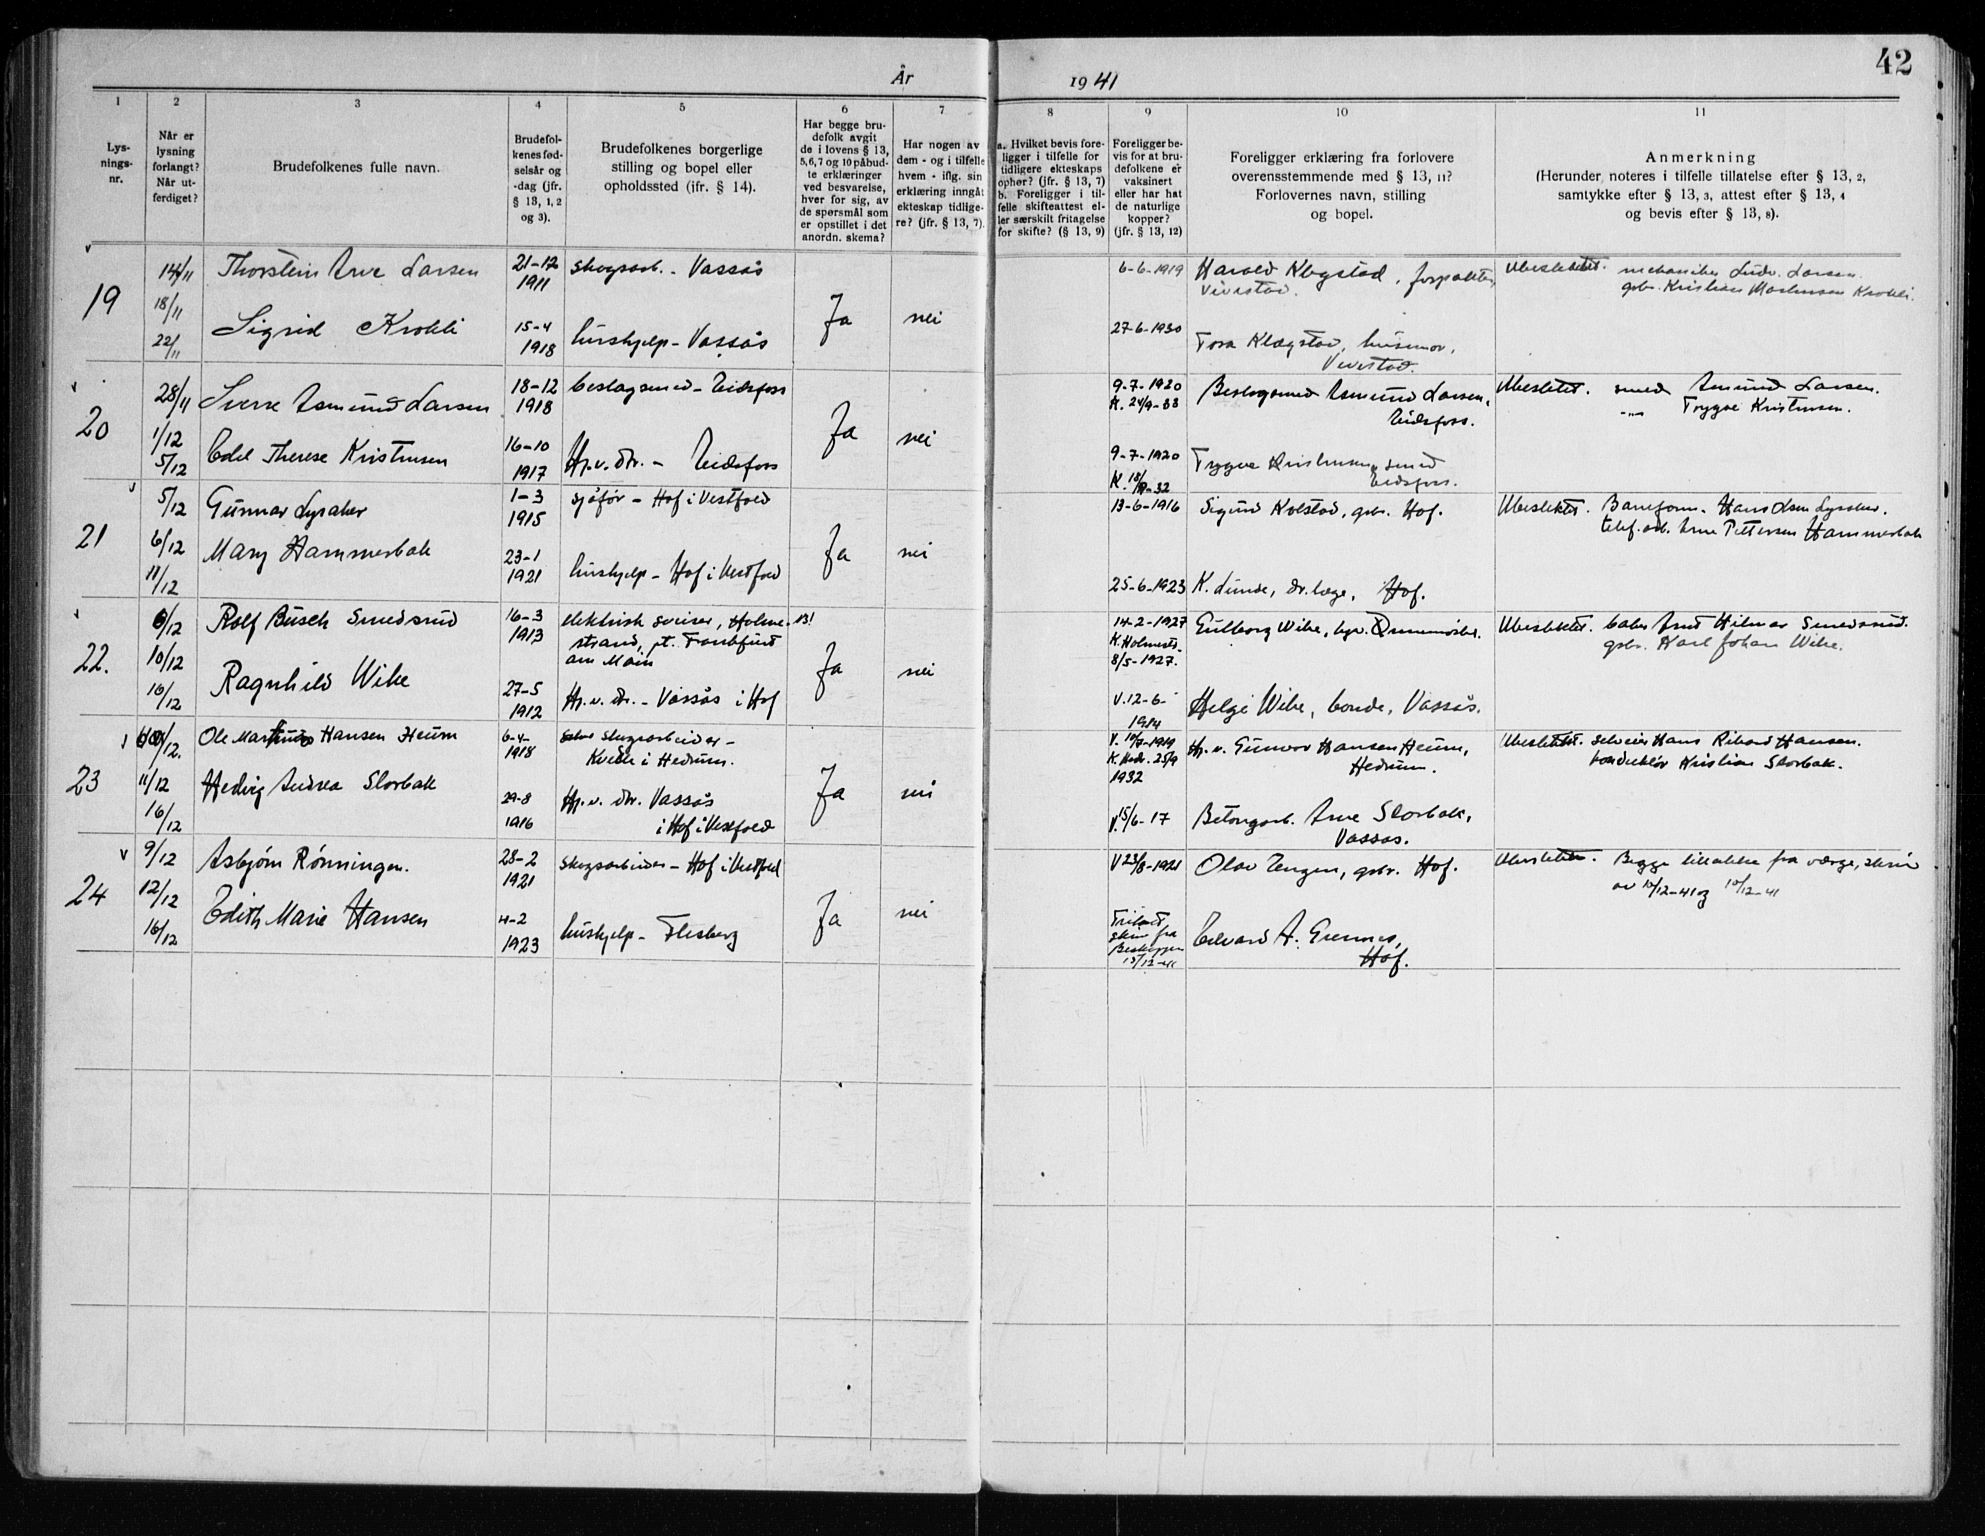 År 1941
42
1 2 3 4 5 6 7 8 9 10 11
Lys-
nings-
nr.
Når er
lysning
forlangt?
Når ut-
ferdiget?
Brudefolkenes fulle navn.
Brudefol-
kenes fød-
selsår og
-dag (jfr.
§ 13, 1, 2
og 3).
Brudefolkenes borgerlige
stilling og bopel eller
opholdssted (ifr. § 14).
Har begge bru-
defolk avgit
de i lovens § 13,
5,6,7 og 10 påbud-
te erklæringer
ved besvarelse,
hver for sig, av
de spørsmål som
er opstillet i det
anordn. skema?
Har nogen av
dem - og i tilfelle
hvem - iflg. sin
erklæring inngåt
ekteskap tidlige-
re? (jfr. § 13, 7).
a. Hvilket bevis fore-
ligger i tilfelle for
tidligere ekteskaps
ophør? (jfr. § 13, 7)
b. Foreligger i til-
felle skifteattest el-
ler særskilt fritagelse
for skifte? (§ 13, 9)
Foreligger be-
vis for at bru-
defolkene er
vaksinert
eller har hat
de naturlige
kopper?
(jfr. § 13, 12)
Foreligger erklæring fra forlovere
overensstemmende med § 13, 11?
Forlovernes navn, stilling
og bopel.
Anmerkning
(Herunder noteres i tilfelle tillatelse efter § 13, 2,
samtykke efter § 13, 3, attest efter § 13, 4
og bevis efter § 13, 8).
19
14/11
18/11
22/11
Thorstein Arve Larsen
21-12
1911
skogsarb. - Vassås
Sigrid Krokli
15-4
1918
hushjelp - Vassås
Ja
nei
6-6-1919
Harald Klegstad, forpakter,
Vivestad.
27-6-1930
Tora Klegstad, husmor,
Vivestad.
Ubeslektet. mekaniker Ludv. Larsen.
gbr. Kristian Krokli.
20
28/11
1/12
5/12
Sverre Asmund Larsen
18-12
1918
beslagsmed - Eidsfoss
Edel Therese Kristensen
16-10
1917
Hp. v. dr. - Eidsfoss
Ja
nei
9-7-1920
K. 24/9-33
Beslagsmed Asmund Larsen,
Eidsfoss.
9-7-1920
K. 18/9-32
Trygve Kristensen, smed
Eidsfoss.
Ubeslektet. smed Asmund Larsen.
-"- Trygve Kristensen.
21
5/12
6/12
11/12
Gunnar Lysaker
1-3
1915
sjåfør - Hof i Vestfold
Mary Hammerbak
23-1
1921
hushjelp - Hof i Vestfold
Ja
nei
13-6-1916
Sigurd Kolstad, gbr. Hof.
25-6-1923
K. Lunde, dr. læge, Hof.
Ubeslektet. Baneform. Hans Olsen Lysaker.
telef.arb. Arne Pettersen Hammerbak
22.
6/12
10/12
16/12
Rolf Busch Smedsrud
16-3
1913
elektrisk sveiser, Holme-
strand, pt. Frankfurt
am Main
Ragnhild Wike
27-5
1912
Hp. v. dr. - Vassås i Hof
Ja
nei
14-2-1927
K. Holmestr.
8/5-1927.
Gulborg Wike,
V. 12-6-
1914
Helge Wike, bonde, Vassås.
Ubeslektet. baker Arnt Hilmar Smedsrud.
gbr. Karl Johan Wike.
23
11/12
16/12
Ole Martinius Hansen Heum
6-4-
1918
skogsarbeider -
Kvelde i Hedrum.
Hedvig Andrea Slorbak
29-8
1916
Hp. v. dr. Vassås
i Hof i Vestfold
Ja
nei
V. 10/7-1919
K. Hedr. 25/9
1932
Hp. v. Gunvor Hansen Heum,
Hedrum.
V. 15/6-17
Betongarb. Arne Slorbak,
Vassås.
Ubeslektet. selveier Hans Rikard Hansen.
konduktør Kristian Slorbak.
24
9/12
12/12
16/12
Asbjørn Rønningen.
28-2
1921
skogsarbeider - Hof i Vestfold
Edith Marie Hansen
4-2
1923
hushjelp - Flesberg
Ja
nei
V 23/8-1921
Olav Zengen, gbr. Hof.
Fritatt
skriv fra
Biskoppen
15/12-41
Edvard A. Grennes,
Hof.
Ubeslektet. Begge tillatelse fra værge, skriv
av 10/12-41 og 10/12-41